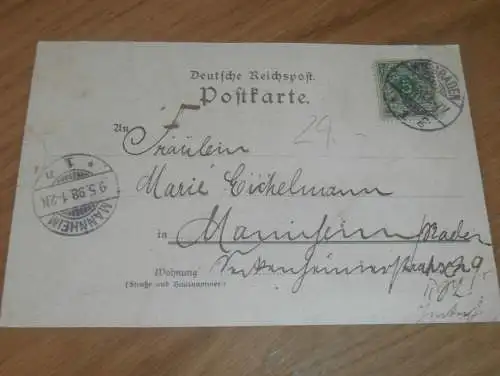 Deutsche Reichspost.
Postkarte.
29.-
An Fräulein
Marie Eichelmann
in Mannheim / Baden
Wohnung
(Straße und Hausnummer)
MANNHEIM
9.5.98.1-2N
* 1 n
BADEN